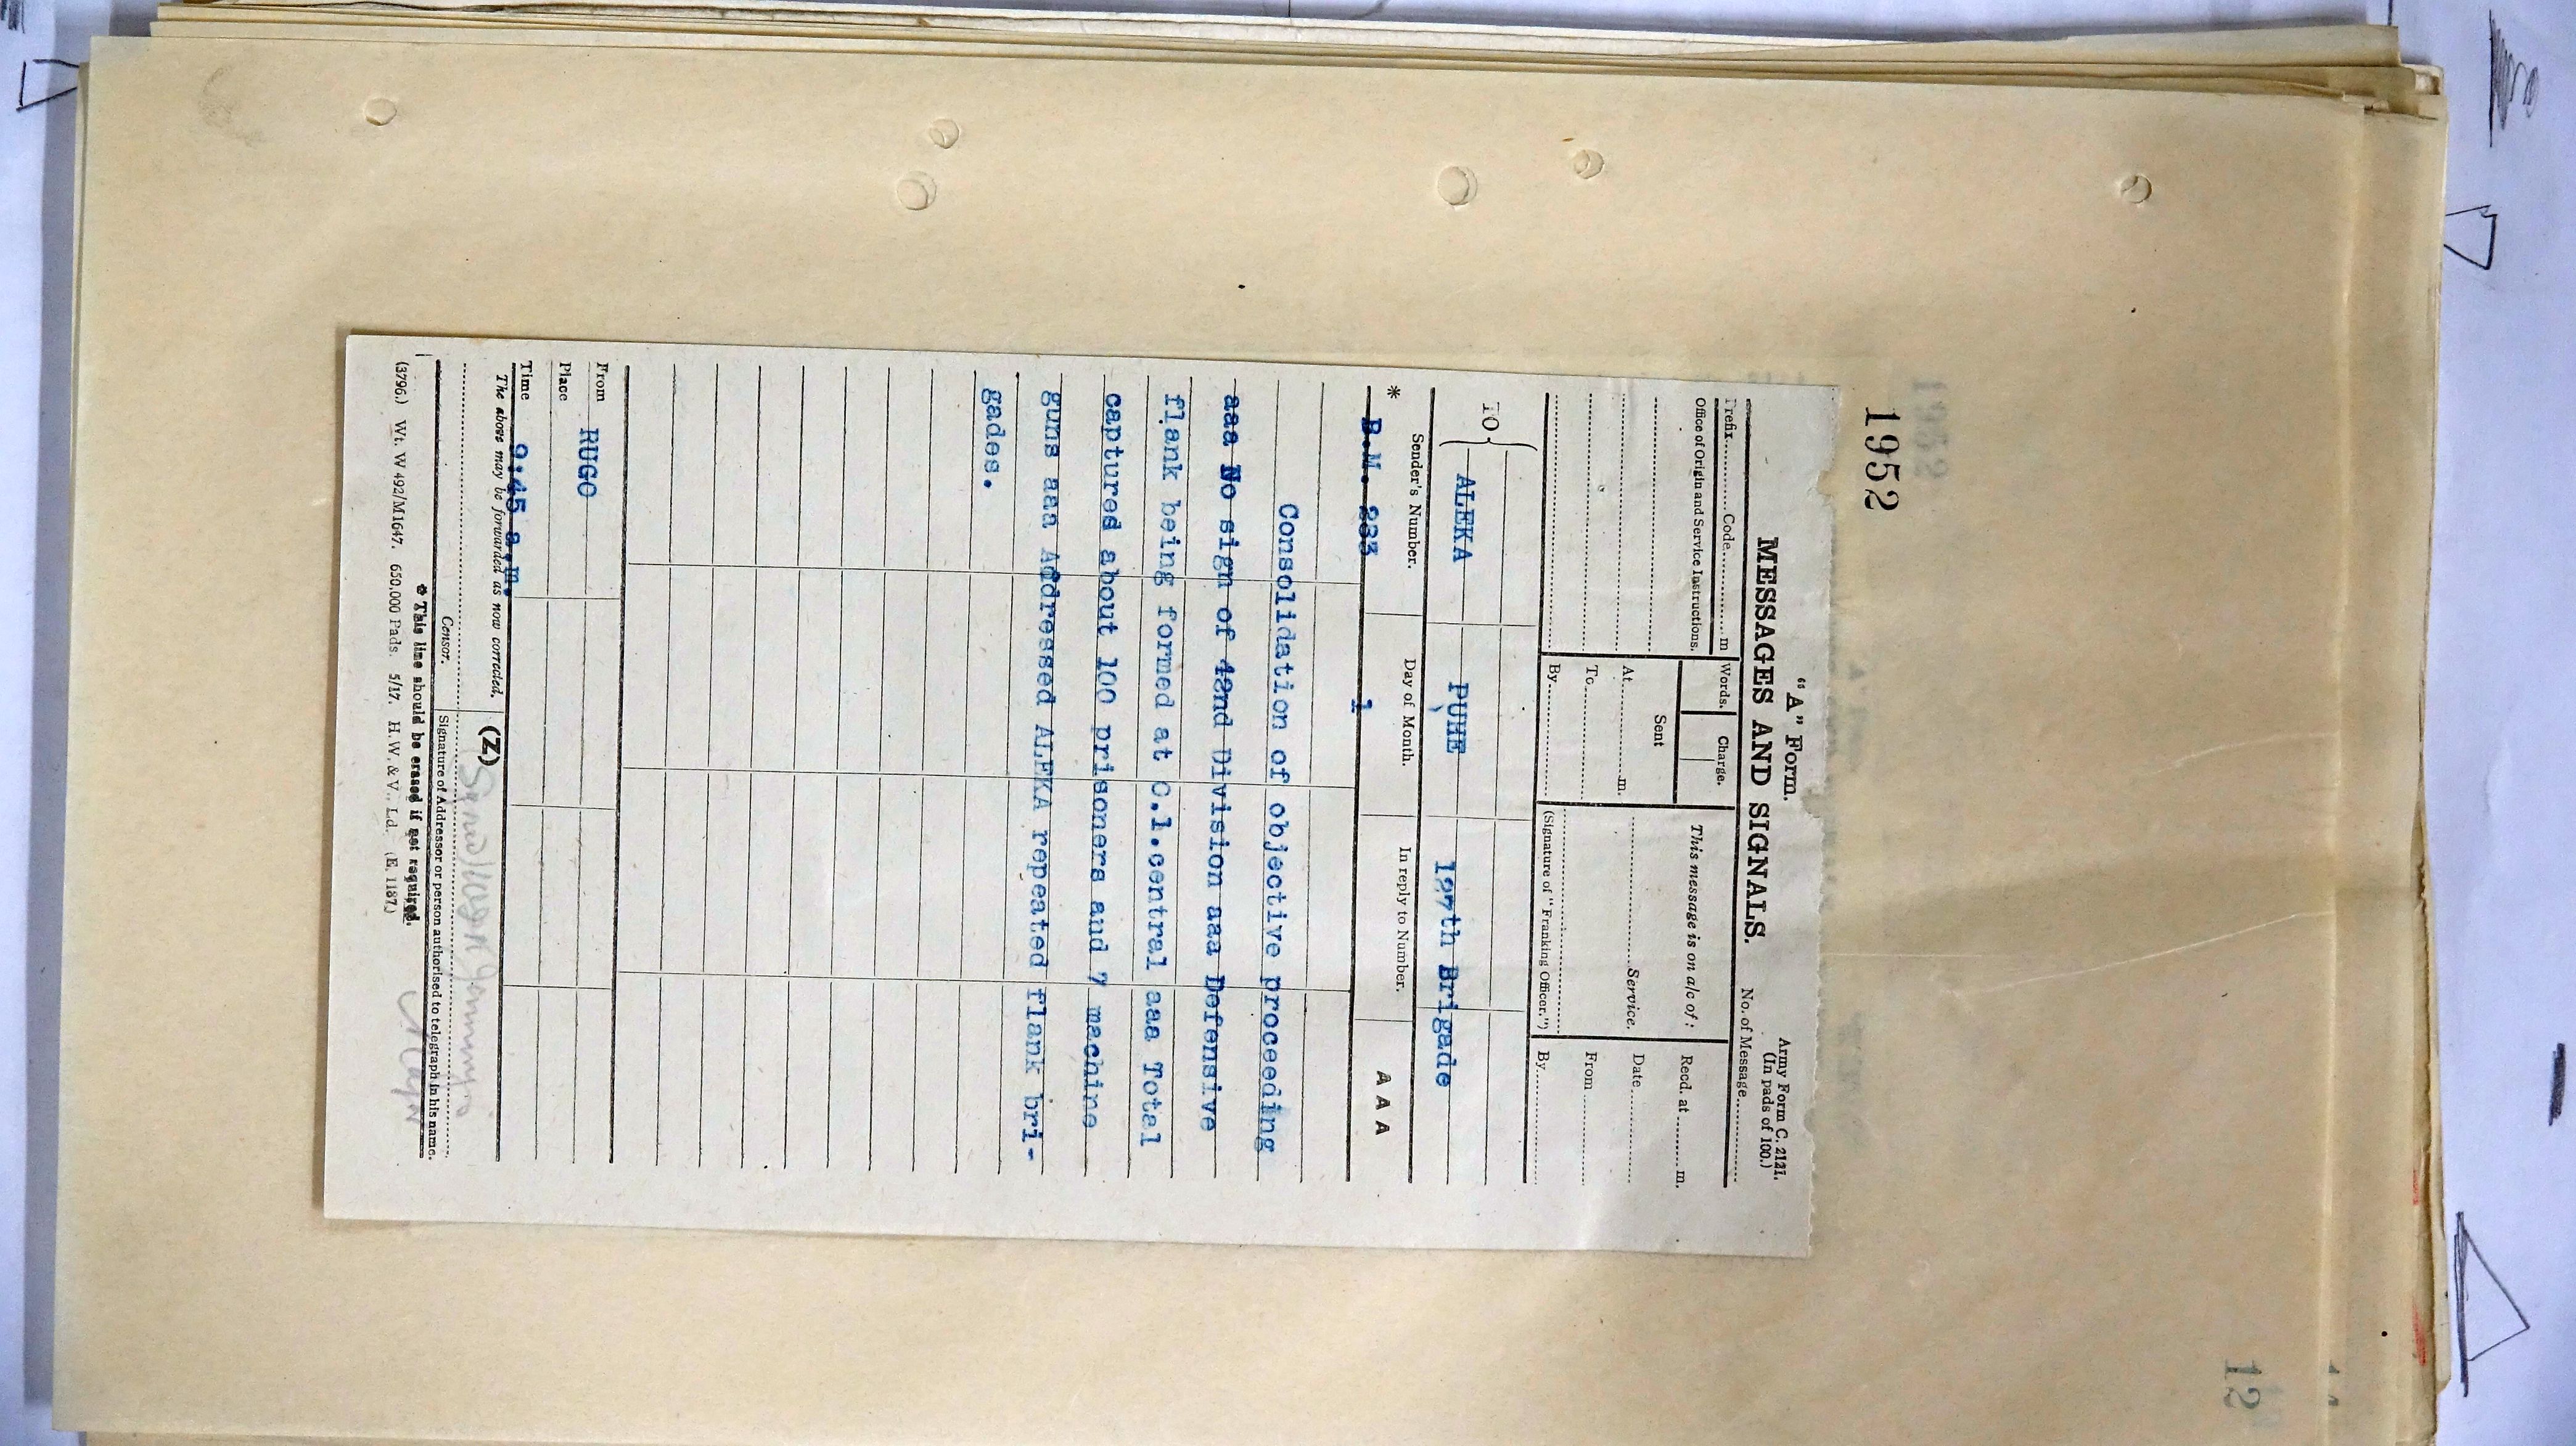 1952
"A" Form.
MESSAGES AND SIGNALS.
Army Form C. 2121.
(In pads of 100.)
No. of Message..........
Prefix..........Code..........m
Words.
Charge.
This message is on a/c of:
Recd. at..........m.
Office of Origin and Service Instructions.
Sent
At..........m.
..........Service.
Date..........
To..........
From..........
By..........
(Signature of "Franking Officer.")
By..........
TO
ALEKA
PUHE
127th Brigade
Sender's Number.
Day of Month.
In reply to Number.
A A A
* B.M. 233
1
Consolidation of objective proceeding
aaa No sign of 42nd Division aaa Defensive
flank being formed at C.1.central aaa Total
captured about 100 prisoners and 7 machine
guns aaa Addressed ALEKA repeated flank bri-
gades.
From
RUGO
Place
Time
9:45 a.m.
The above may be forwarded as now corrected.
(Z)
Censor.
Signature of Addressor or person authorised to telegraph in his name.
* This line should be erased if not required.
(3796.) Wt. W 492/M1647. 650,000 Pads. 5/17. H.W. & V., Ld. (E. 1187.)
12